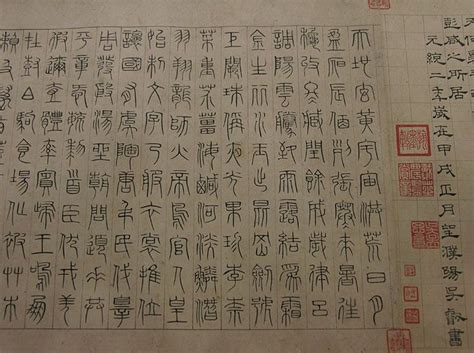 彭咸之所居
元統二年歲在甲戌正月望濮陽吳叡書
天地玄黃宇宙洪荒日月
盈昃辰宿列張寒來暑往
秋收冬藏閏餘成歲律呂
調陽雲騰致雨露結為霜
金生麗水玉出崑岡劍號
巨闕珠稱夜光果珍李柰
菜重芥薑海鹹河淡鱗潛
羽翔龍師火帝鳥官人皇
始制文字乃服衣裳推位
讓國有虞陶唐弔民伐罪
周發殷湯坐朝問道垂拱
平章愛育黎首臣伏戎羌
遐邇壹體率賓歸王鳴鳳
在樹白駒食場化被草木
賴及萬方